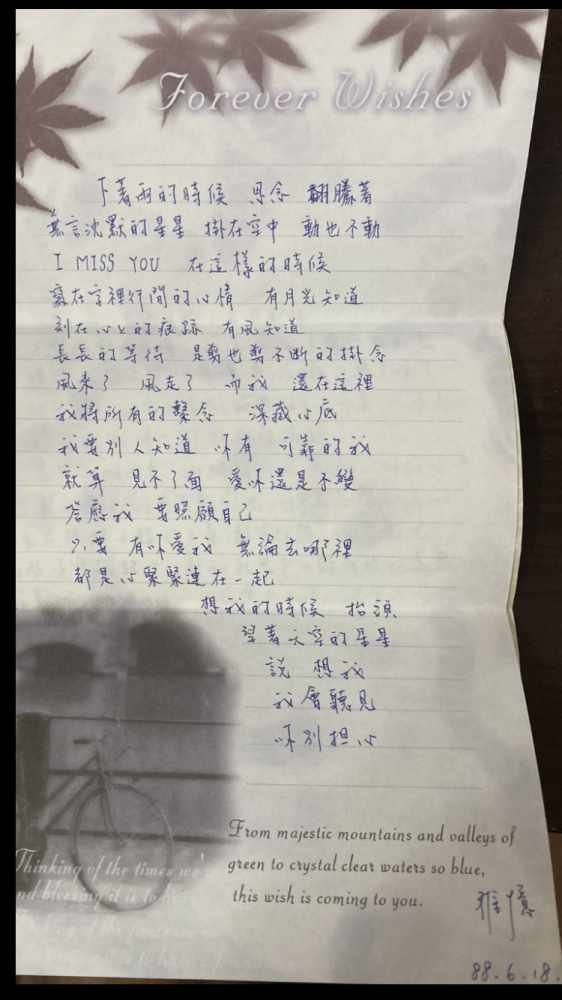 Forever Wishes
下著雨的時候 思念 翻騰著
無言沈默的星星 掛在空中 動也不動
I MISS YOU 在這樣的時候
寫在字裡行間的心情 有月光知道
刻在心上的痕跡 有風知道
長長的等待 是剪也剪不斷的掛念
風來了 風走了 而我 還在這裡
我將所有的繫念 深藏心底
我要別人知道 你有 可靠的我
就算 見不了面 愛你還是不變
答應我 要照顧自己
只要 有你愛我 無論去哪裡
都是心緊緊連在一起
想我的時候 抬頭
望著天空的星星
說 想我
我會聽見
你別擔心
From majestic mountains and valleys of
green to crystal clear waters so blue,
this wish is coming to you.
Thinking of the times we'
nd blessing it is to ha
雅憶
88.6.18.